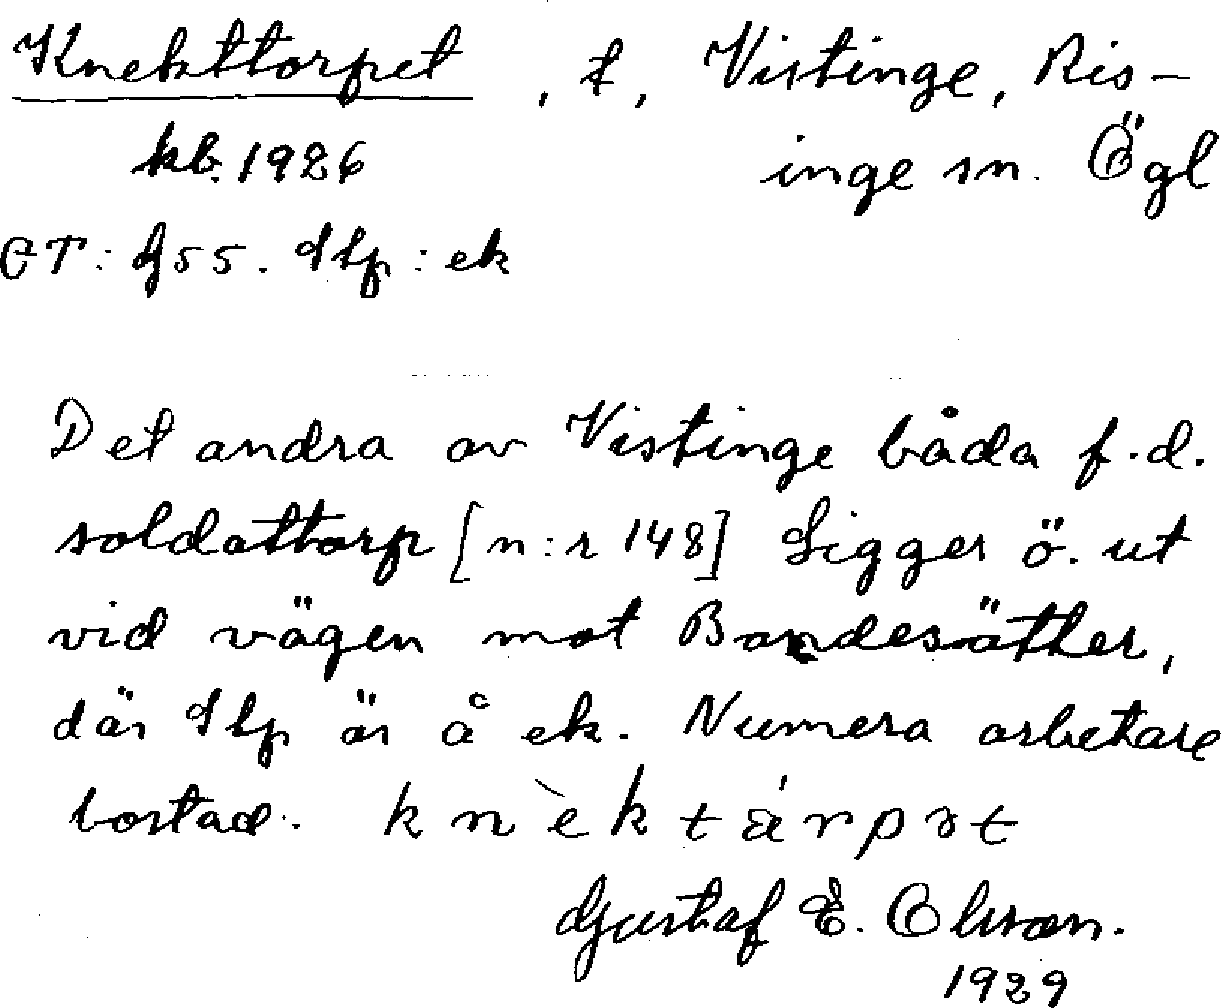 Knekttorpet, t, Vistinge, Ris-
kb. 1926 inge sn. Ögl
GT: G55. Stp: ek
Det andra av Vistinge båda f.d.
soldattorp [n:r 148] Ligger ö. ut
vid vägen mot Bondesätter,
där Stp är å ek. Numera arbetare
bostad. knèktárpət
Gustaf E. Olsson.
1929